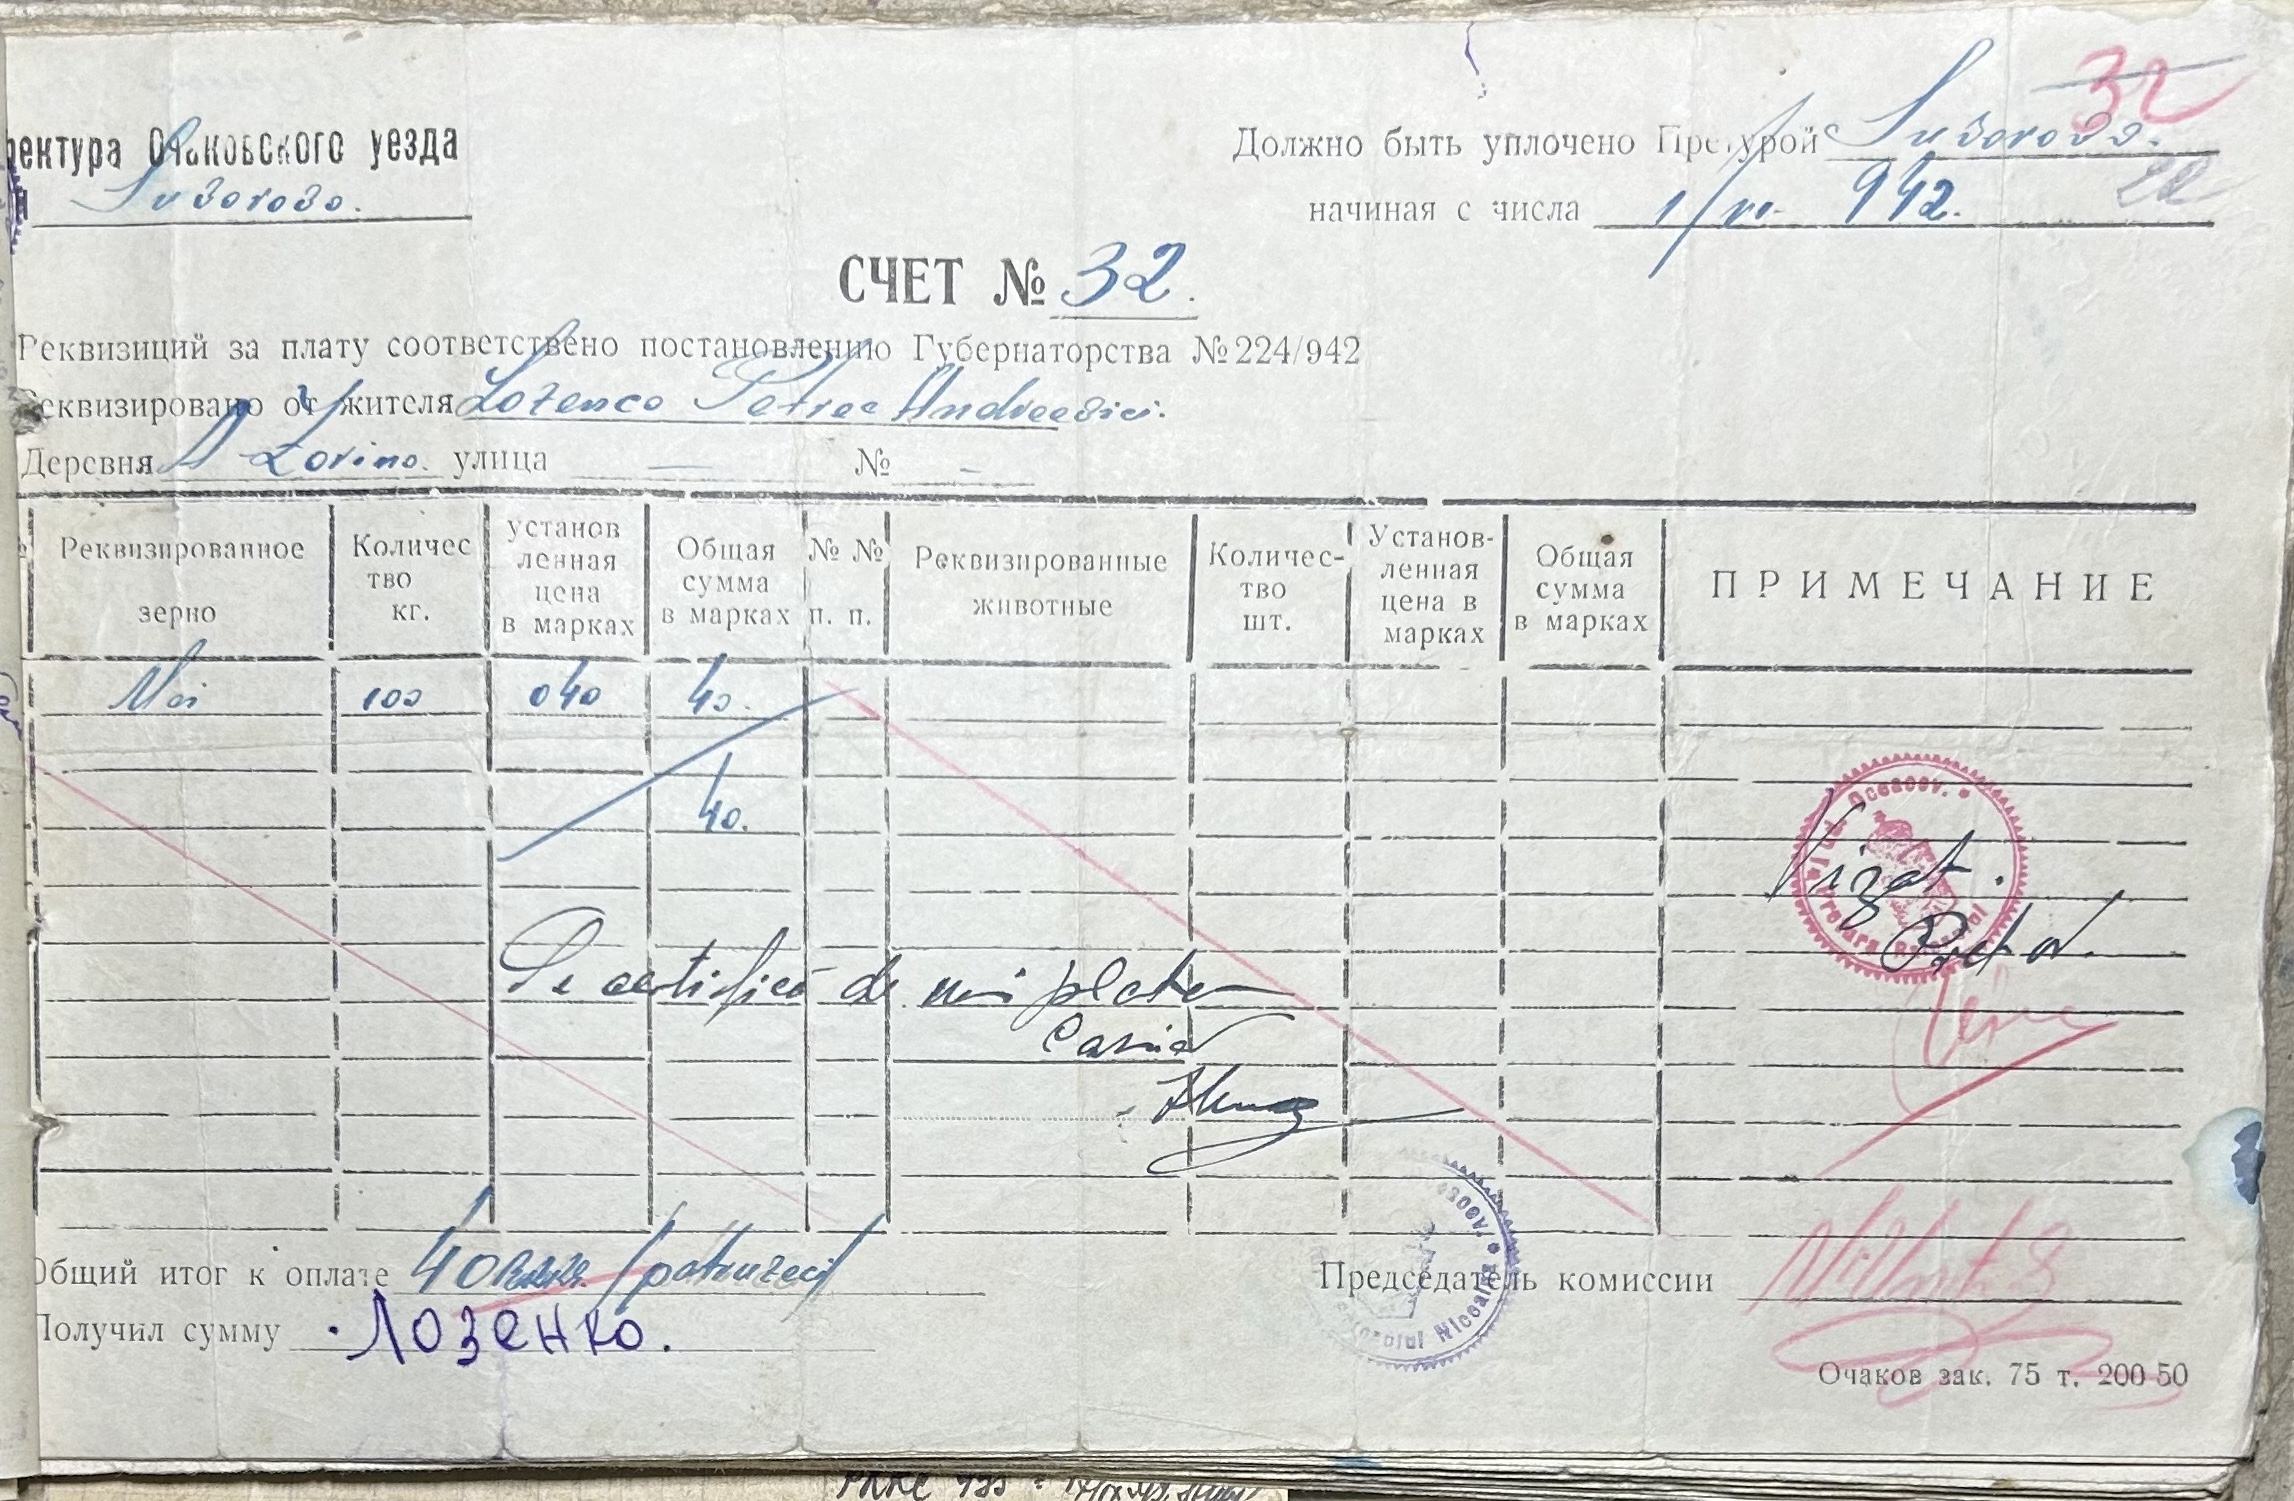 ректура Очаковского уезда
Suvorovo.
Должно быть уплочено Претурой Suvorovo.
32
22
начиная с числа 1/VI- 942.
СЧЕТ № 32.
Реквизиций за плату соответствено постановлению Губернаторства № 224/942
Реквизировано от жителя Lozenco Petrea Andreevici.
Деревня A Zorino. улица — № -
Реквизированное зерно
Количес тво кг.
установ ленная цена в марках
Общая сумма в марках
№ № п. п.
Реквизированные животные
Количес- тво шт.
Установ- ленная цена в марках
Общая сумма в марках
ПРИМЕЧАНИЕ
100 040 40.
40.
Jud. Oceacov.
Vizat.
Pretor
Se certifică de noi plata
Casier
Общий итог к оплате 40 /patruzeci/
Председатель комиссии
Получил сумму Лозенко.
Очаков зак. 75 т. 200-50